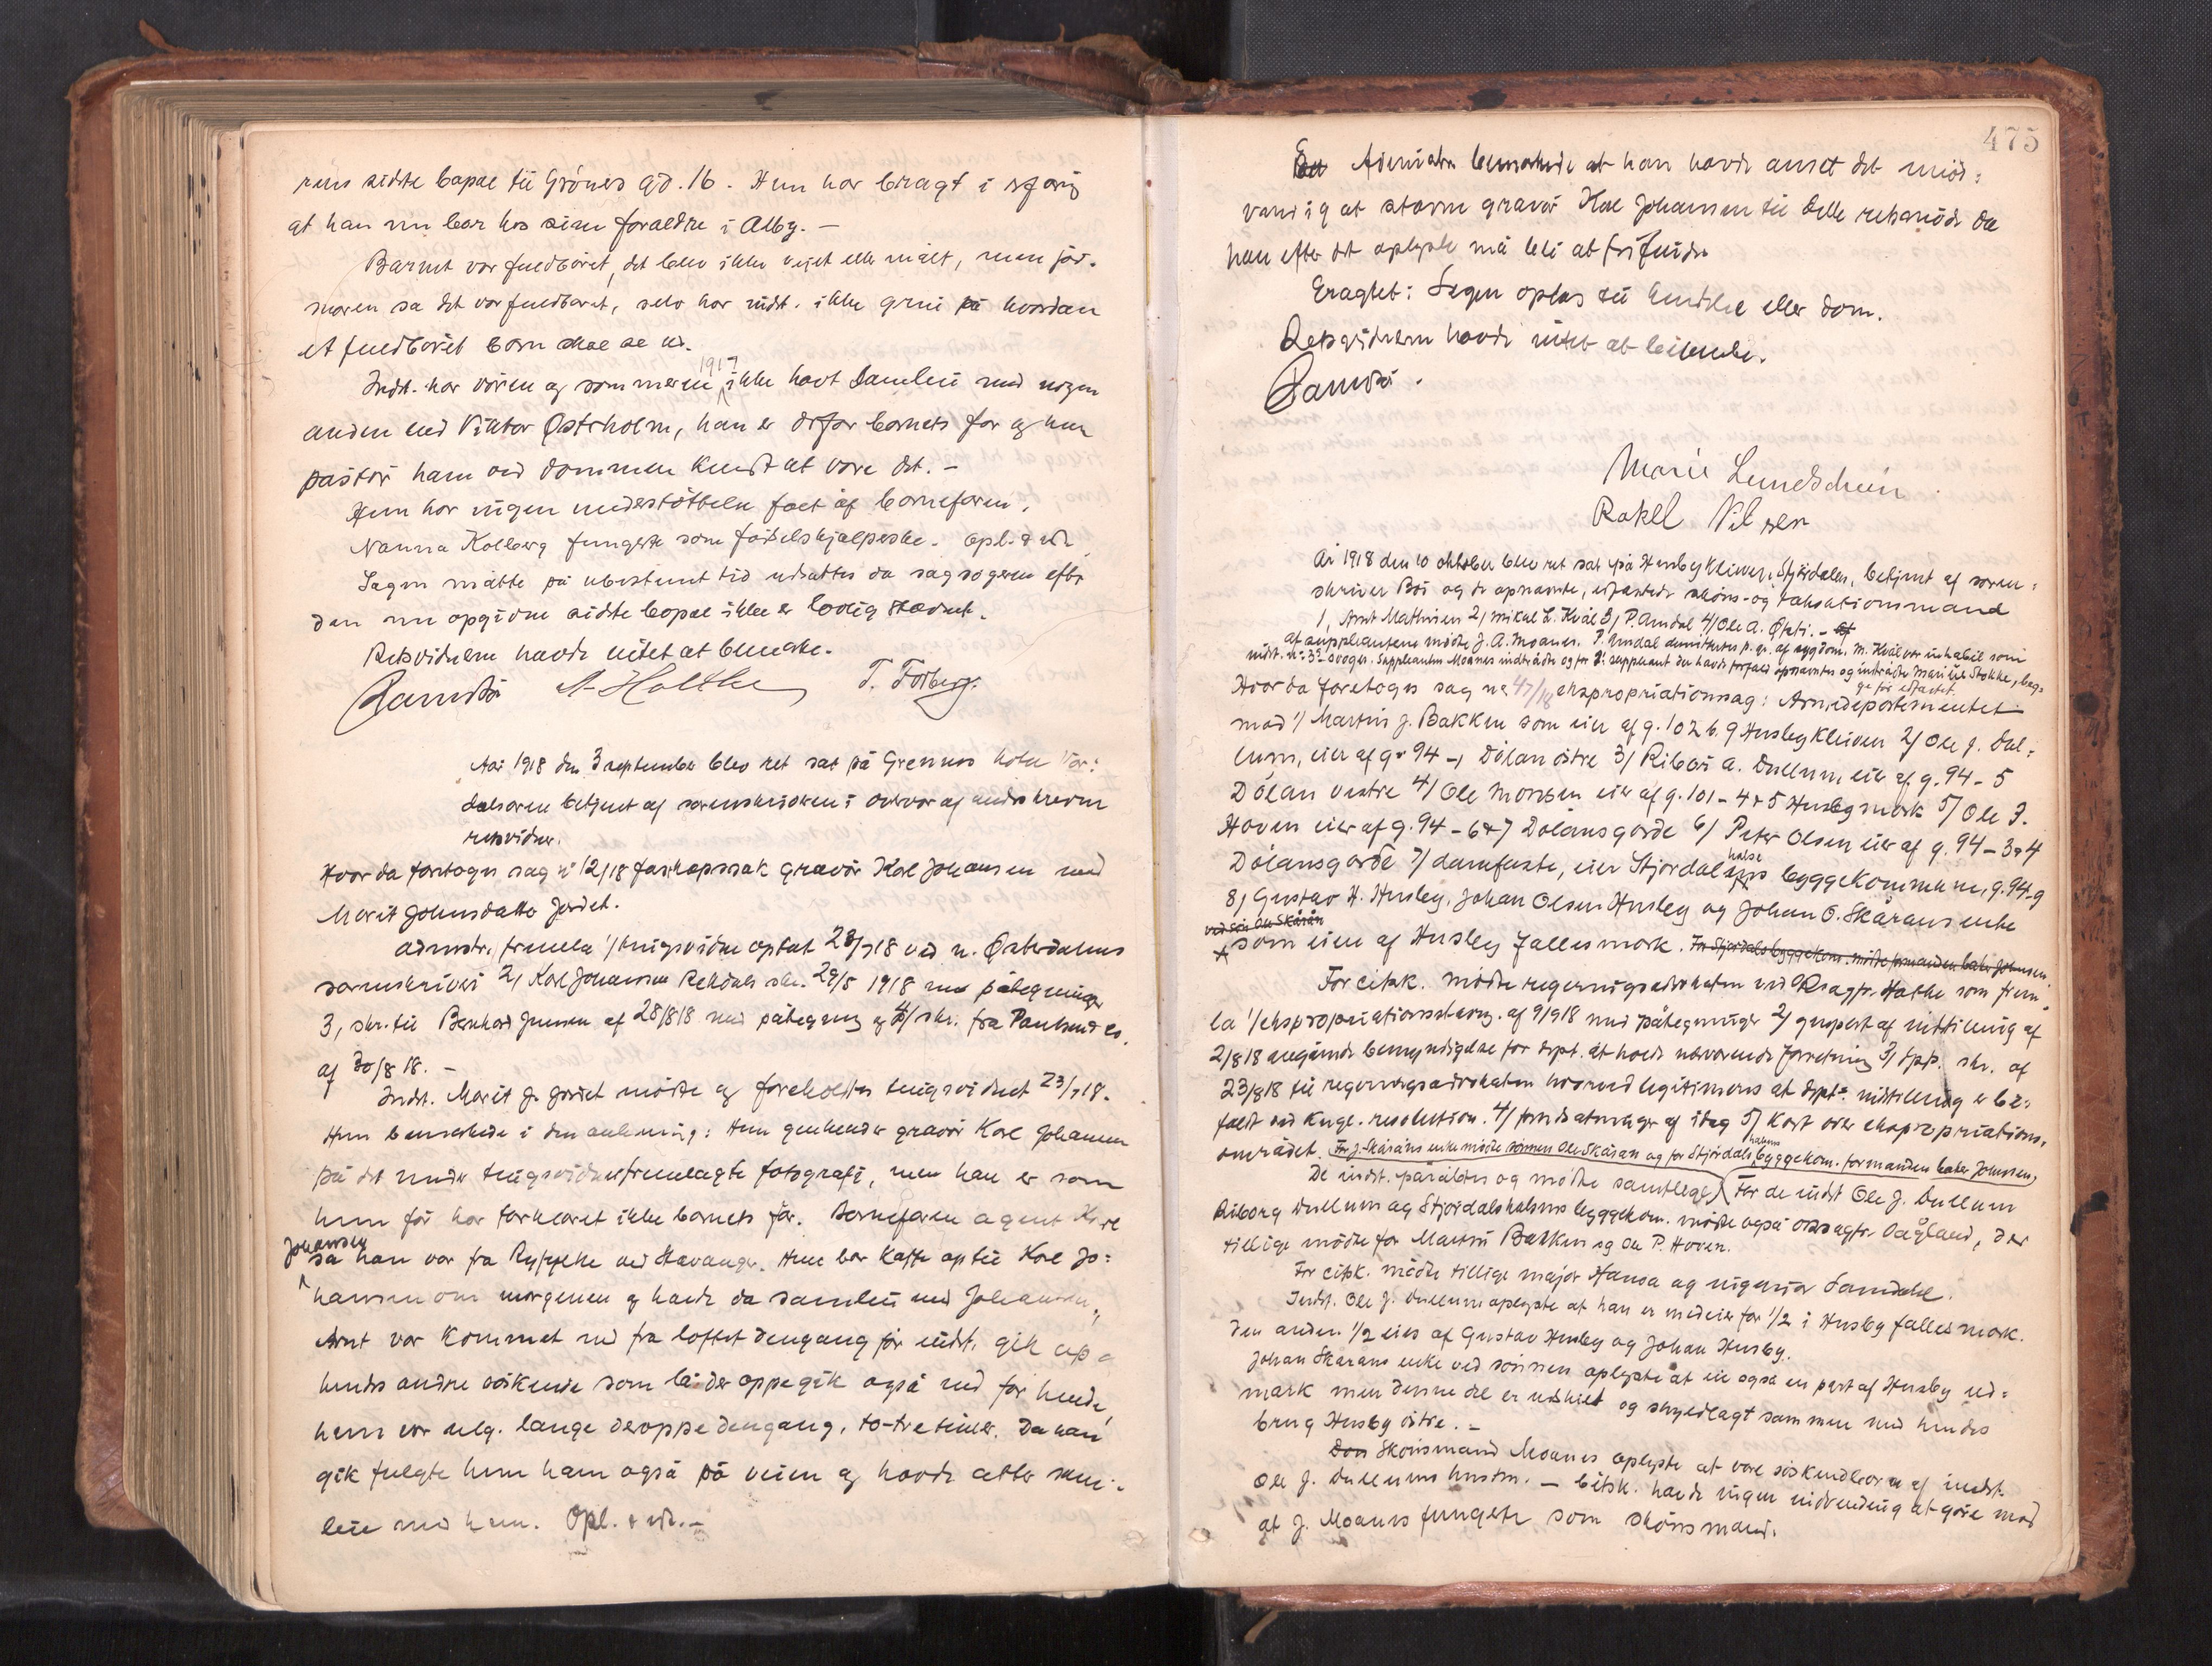 sidste bopæl til Grönes gd. 16. Hun har bragt i erfaring
at han nu bor hos sine forældre i Alby. —
Barnet var fuldbåret, det blev ikke veiet eller målt, men jor-
moren sa det var fuldbåret, selv har indst. ikke greie på hvordan
et fuldbåret barn skal se ut.
Indst. har våren og sommeren 1917 ikke havt samleie med nogen
anden end Viktor Østerholm, han er derfor barnets far og hun
påstår ham ved dommen kjendt at være det. —
Hun har ingen understöttelse faet af barnefaren.
Nanna Kolberg fungerte som födselshjælperske. Opl. & vedt.
Sagen måtte på ubestemt tid utsættes da sagsögeren efter
den nu opgivne sidste bopæl ikke er lovlig stævnet.
Retsvidnerne havde intet at bemerke.
A. Holthe T. Forberg.
Aar 1918 den 3 september blev ret sat på Grennes hotel
dalsören betjent af sorenskriveren i overvær af undskrevne
retsvidner.
Hvor da foretoges sag nr 12/18 farskapssak gravör Karl Johansen med
Marit Johnsdatter Jordet.
Admstr. fremla 1/ tingsvidne optat 23/7 18 ved n. Østerdalens
sorenskriveri 2/ Karl Johansen Rekdals skr. 29/5 1918 med påtegninger
3, skr. til Bernhard Jensen af 28/8 18 med påtegning og 4/ skr. fra Paulsen & co.
af 30/8 18. —
Indst. Marit J. Jordet mödte og foreholdtes tingsvidnet 23/7 18.
Hun bemerkede i den anledning: Hun gjenkender gravör Karl Johansen
på det under tingsvidnet fremlagte fotografi, men han er som
hun för har forklaret ikke barnets far. Barnefaren agent Karl
Johansen sa han var fra Ryfylke ved Stavanger. Hun bar kaffe op til Karl Jo-
hansen om morgenen og havde da samleie med Johansen,
Arnt var kommet ned fra loftet dengang för indst. gik op og
hendes andre söskende som lå der oppe gik også ned för hende,
hun var selv. længe deroppe dengang, to-tre timer. Da han
gik fulgte hun ham også på veien og havde atter sam-
leie med ham. Opl. & vedt. —
475
Administr. bemerkede at han havde anset det unöd-
vendig at stevne gravör Karl Johansen til dette retsmöde da
han efter det oplyste må bli at frifinde
Eragtet: Sagen optas til kjendelse eller dom.
Retsvidnerne havde intet at bemerke.
Marie Lundschein
Rakel Nilsen
År 1918 den 10 oktober blev ret sat på Husby Kleiven, Stjördalen, betjent af soren-
skriver Böe og de opnævnte, edfæstede skjöns- og takstationsmænd
1, Arnt Mathisen 2, Mikal L. Kvål 3, P. Arndal 4/ Ole A. Øfsti. —
af suppleantene mödte J. A. Moanes. P. Arndal dimitteres p. gr. af sygdom. M. Kvål var inhabil som
indst. nr. 3s svoger. Suppleanten Moanes indtrådte og for 2. suppleant der havde forfald opnævntes og indtrådte Stokke, beg-
ge för edfæstet.
Hvor da foretoges sag nr. 47/18 ekspropriationssag: Armedepartementet
mod 1/ Martin J. Bakken som eier af g. 102 b. 9 Husby Kleiven 2/ Ole J. Dul-
lum, eier af g. 94 -1 Dölan östre 3/ Riborg A. Dullum, eier af g. 94 - 5
Dölan vestre 4/ Ole Monsen eier af g. 101 - 4 & 5 Husbymark 5/ Ole P.
Hoven eier af g. 94 - 6 & 7 Dölansgjerde 6/ Peter Olsen eier af g. 94 - 3 & 4
Dölansgjerde 7/ damfæste, eier Stjördalshalsens byggekommune, g. 94-9
8, Gustav H. Husby, Johan Olsen Husby og Johan O. Skårans enke
ved sön Ole Skårån
som eiere af Husby fællesmark. For Stjördals byggekom. mödte formanden baker Johnsen
For citsk. mödte regjeringsadvokaten ved Osagfr. Holthe som frem-
la 1/ ekspropriationsstevng. af 9/9 18 med påtegninger 2/ gjenpart af indstilling af
2/8 18 angående bemyndigelse for dept. at holde nærværende forretning 3/ dept. skr. af
23/8 18 til regjeringsadvokaten hvorved legitimeres at dpts. indstilling er bi-
faldt ved kngl. resolution. 4/ forutsætninger af idag 5/ kart over ekspropriations-
området. For J. Skåråns enke mödte sönnen Ole Skåran og for Stjördalshalsens byggekom. formanden baker Johnsen,
De indst. påråbtes og mödte samtlige. For de indst Ole J. Dullum
Riborg Dullum og Stjördalshalsens byggekom. mödte også osagfr. Vågland, der
tillige mödte for Martin Bakken og Ole P. Hoven.
For citsk. mödte tillige major Hansa og ingeniör Samdahl.
Indst. Ole J. Dullum oplyste at han er medeier for 1/2 i Husby fællesmark.
den anden 1/2 eies af Gustav Husby og Johan Husby.
Johan Skårans enke ved sönnen oplyste at eie også en part af Husby ud-
mark men denne del er udskilt og skyldlagt sammen med hendes
brug Husby östre. —
Skönsmand Moanes oplyste at være söskendbarn af indst.
Ole J. Dullums hustru. — Citsk. havde ingen indvending at göre mod
at J. Moanes fungerte som skönsmand.